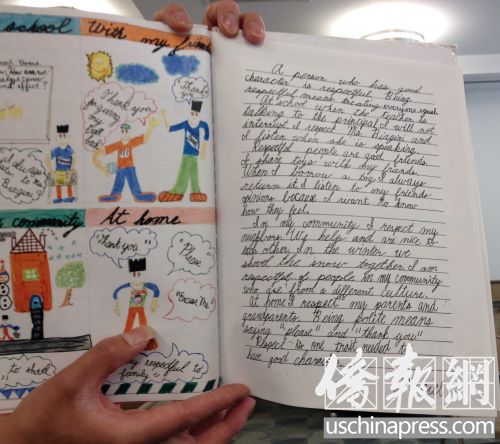 school
with my friends
Thank you
for giving
my
ball
back
Thank
you
community
At home
Thank you
Please
Excuse Me
respectful to
family
A person who has good
character is respectful. Being
respectful means treating everyone equal.
At school when the teacher is
talking to the principal I will not
interrupt. I respect Ms. Biagen and
I listen when she is speaking.
Respectful people are good friends.
I share toys with my friends.
When I borrow a toy I always
return it. I listen to my friends
opinions because I want to know
how they feel.
In my community I respect my
neighbors. We help and are nice to
each other. In the winter we
shovel the snow together. I am
respectful of people in my community
who are from a different culture.
At home I respect my parents and
grandparents. Being polite means
saying "please" and "thank you"
Respect is one trait needed to
have good
僑報網
uschinapress.com